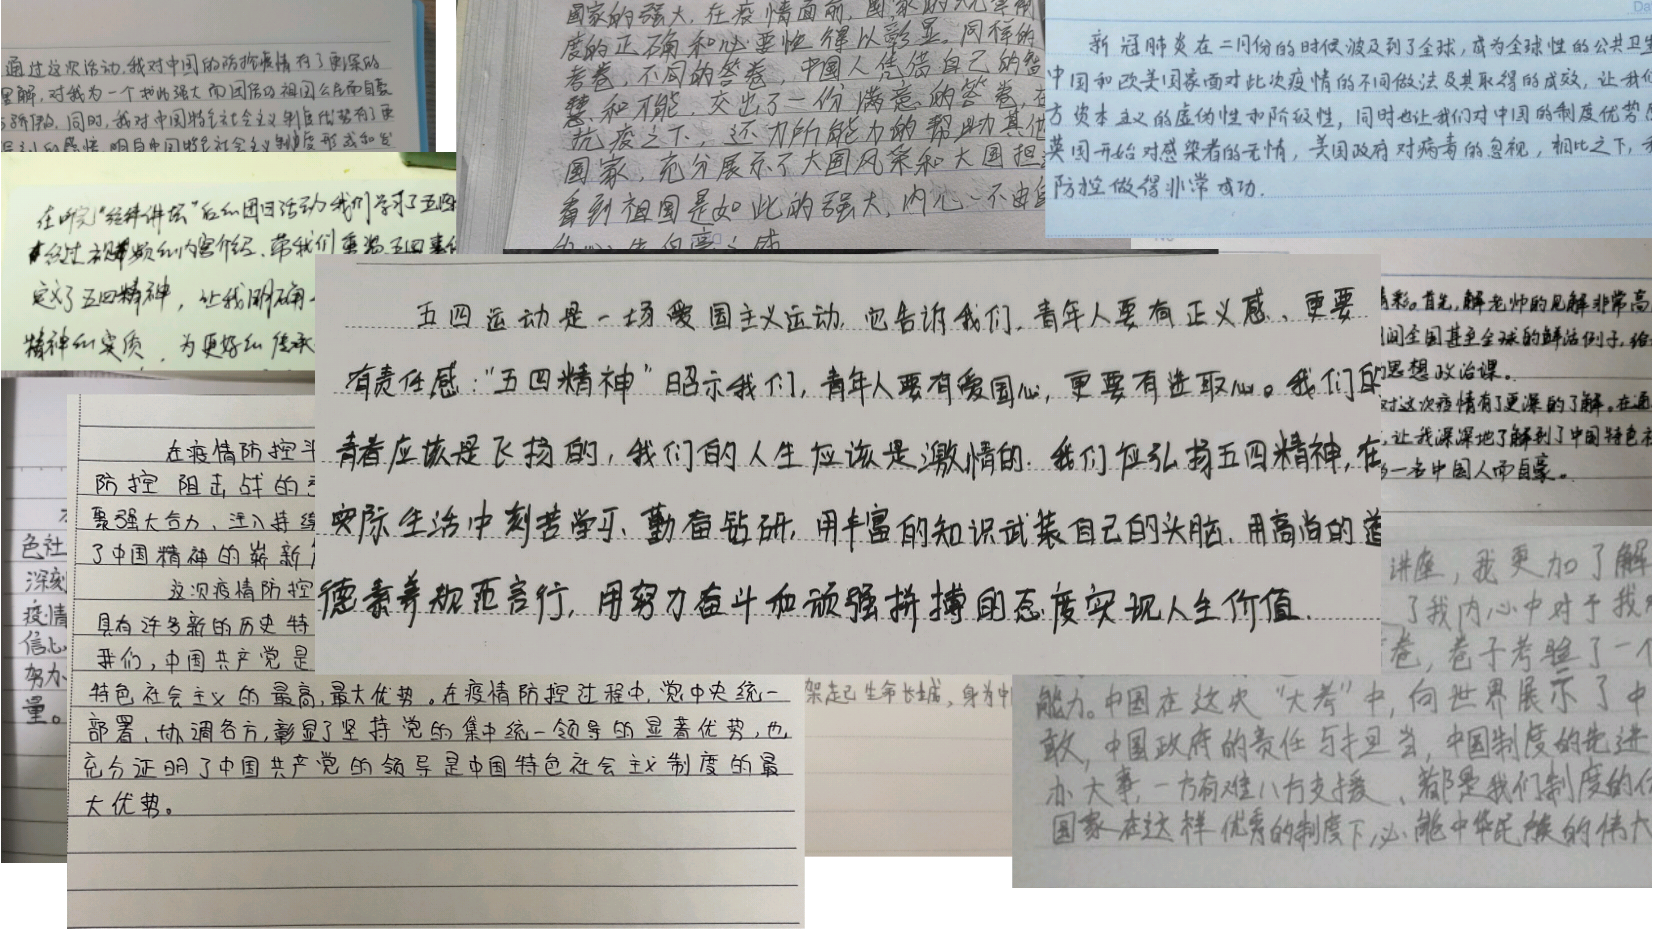 通过这次活动,我对中国的防控疫情有了更深的
理解,对我为一个如此强大而团结的祖国公民而自豪
与骄傲,同时,我对中国特色社会主义制度优势有了更
国家的强大,在疫情面前,国家的
度的正确和必要性得以彰显。同样的
考卷,不同的答卷,中国人凭借自己的智
慧和才能,交出了一份满意的答卷,在
抗疫之下,还力所能力的帮助其他
国家,充分展示了大国风采和大国担
看到祖国是如此的强大,内心不由自
新冠肺炎在二月份的时候波及到了全球,成为全球性的公共卫生
中国和欧美国家面对此次疫情的不同做法及其取得的成效,让我们
方资本主义的虚伪性和阶级性,同时也让我们对中国的制度优势
英国开始对感染者的无情,美国政府对病毒的忽视,相比之下,
防控做得非常成功.
在听完"经纬讲坛"后的团日活动我们学习了五四
经过视频的内容介绍,带我们重温五四事件
定义了五四精神,让我明确
精神的实质,为更好的传承
五四运动是一场爱国主义运动,它告诉我们,青年人要有正义感、更要
有责任感:"五四精神"昭示我们,青年人要有爱国心,更要有进取心。我们的
青春应该是飞扬的,我们的人生应该是激情的.我们应弘扬五四精神,在
实际生活中刻苦学习、勤奋钻研,用丰富的知识武装自己的头脑.用高尚的道
德素养规范言行,用努力奋斗和顽强拼搏的态度实现人生价值.
精彩。首先,解老师的见解非常高
间全国甚至全球的鲜活例子,给
思想政治课。
对这次疫情有了更深的了解。在通
,让我深深地了解到了中国特色社
一名中国人而自豪。
色社
深刻
疫情
信心
努力
量。
在疫情防控斗
防控阻击战的
聚强大合力,注入持续
了中国精神的崭新
这次疫情防控
具有许多新的历史特
我们,中国共产党是
特色社会主义的最高,最大优势。在疫情防控过程中,党中央统一
部署,协调各方,彰显了坚持党的集中统一领导的显著优势,也
充分证明了中国共产党的领导是中国特色社会主义制度的最
大优势。
架起己生命长城,身为中
讲座,我更加了解
了我内心中对于我
卷,卷子考验了一个
能力。中国在这次"大考"中,向世界展示了中
敢,中国政府的责任与担当,中国制度的先进
办大事,一方有难八方支援、都是我们制度的优
国家在这样优秀的制度下,必能中华民族的伟大